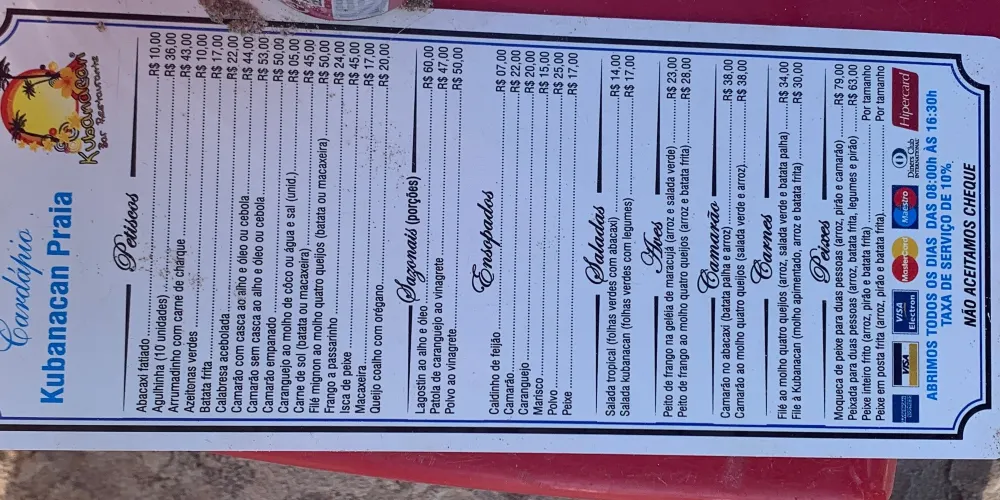 Cardápio
Kubanacan Praia
Kubanacan
Bar Restaurante
Petiscos
Abacaxi fatiado R$ 10,00
Agulhinha (10 unidades) R$ 36,00
Arrumadinho com carne de charque R$ 43,00
Azeitonas verdes R$ 10,00
Batata frita R$ 17,00
Calabresa acebolada R$ 22,00
Camarão com casca ao alho e óleo ou cebola R$ 44,00
Camarão sem casca ao alho e óleo ou cebola R$ 53,00
Camarão empanado R$ 50,00
Caranguejo ao molho de côco ou água e sal (unid.) R$ 05,00
Carne de sol (batata ou macaxeira) R$ 45,00
Filé mignon ao molho quatro queijos (batata ou macaxeira) R$ 50,00
Frango a passarinho R$ 24,00
Isca de peixe R$ 45,00
Macaxeira R$ 17,00
Queijo coalho com orégano R$ 20,00
Sazonais (porções)
Lagostin ao alho e óleo R$ 60,00
Patola de caranguejo ao vinagrete R$ 47,00
Polvo ao vinagrete R$ 50,00
Ensopados
Caldinho de feijão R$ 07,00
Camarão R$ 22,00
Caranguejo R$ 20,00
Marisco R$ 15,00
Polvo R$ 25,00
Peixe R$ 17,00
Saladas
Salada tropical (folhas verdes com abacaxi) R$ 14,00
Salada kubanacan (folhas verdes com legumes) R$ 17,00
Aves
Peito de frango na geléia de maracujá (arroz e salada verde) R$ 23,00
Peito de frango ao molho quatro queijos (arroz e batata frita) R$ 28,00
Camarão
Camarão no abacaxi (batata palha e arroz) R$ 38,00
Camarão ao molho quatro queijos (salada verde e arroz) R$ 38,00
Carnes
Filé ao molho quatro queijos (arroz, salada verde e batata palha) R$ 34,00
Filé à Kubanacan (molho apimentado, arroz e batata frita) R$ 30,00
Peixes
Moqueca de peixe para duas pessoas (arroz, pirão e camarão) R$ 79,00
Peixada para duas pessoas (arroz, batata frita, legumes e pirão) R$ 63,00
Peixe inteiro frito (arroz, pirão e batata frita) Por tamanho
Peixe em posta frita (arroz, pirão e batata frita) Por tamanho
VISA VISA Electron MasterCard Maestro Diners Club INTERNATIONAL Hipercard
ABRIMOS TODOS OS DIAS DAS 08:00h ÀS 16:30h
TAXA DE SERVIÇO DE 10%
NÃO ACEITAMOS CHEQUE